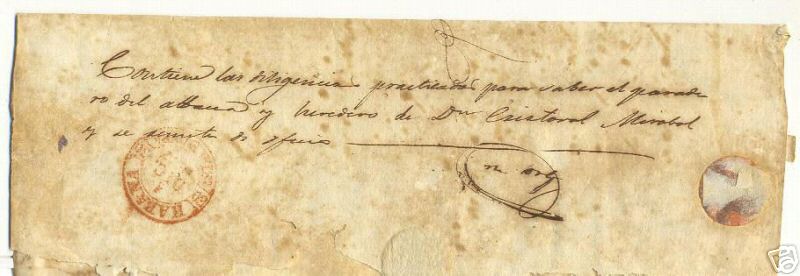 Contiene las diligencias practicadas para saber el parade
ro del albacea y herederos de Dn Cristoval Mirabal
y se remite de oficio